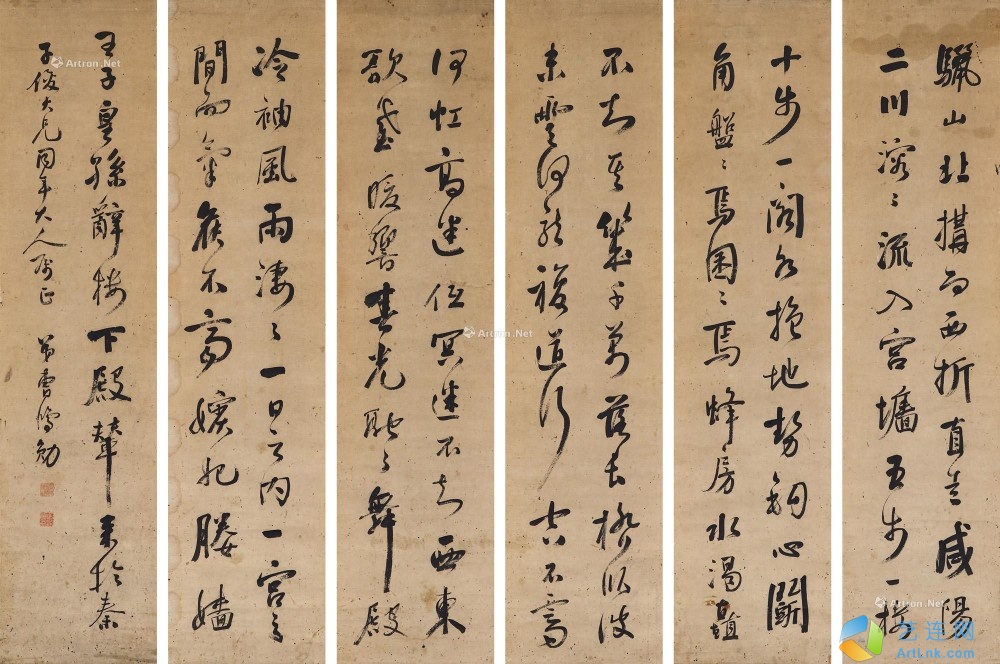 驪山北搆而西折直走咸陽
二川溶〻流入宮墻五步一樓
十步一閣各抱地勢鉤心鬬
角盤〻焉囷〻焉蜂房水渦矗
不知其幾千萬落長橋臥波
未雲何龍複道行空不霽
何虹高迷低冥迷不知西東
歌臺暖響春光融〻舞殿
冷袖風雨淒〻一日之内一宮之
間而氣候不齊嬪妃媵嬙
王子皇孫辭樓下殿輦来於秦
子俊大兄同年大人屬正 弟曹鴻勛
Artron.Net
Artron.Net
Artron.Net
艺连网
ArtLink.com